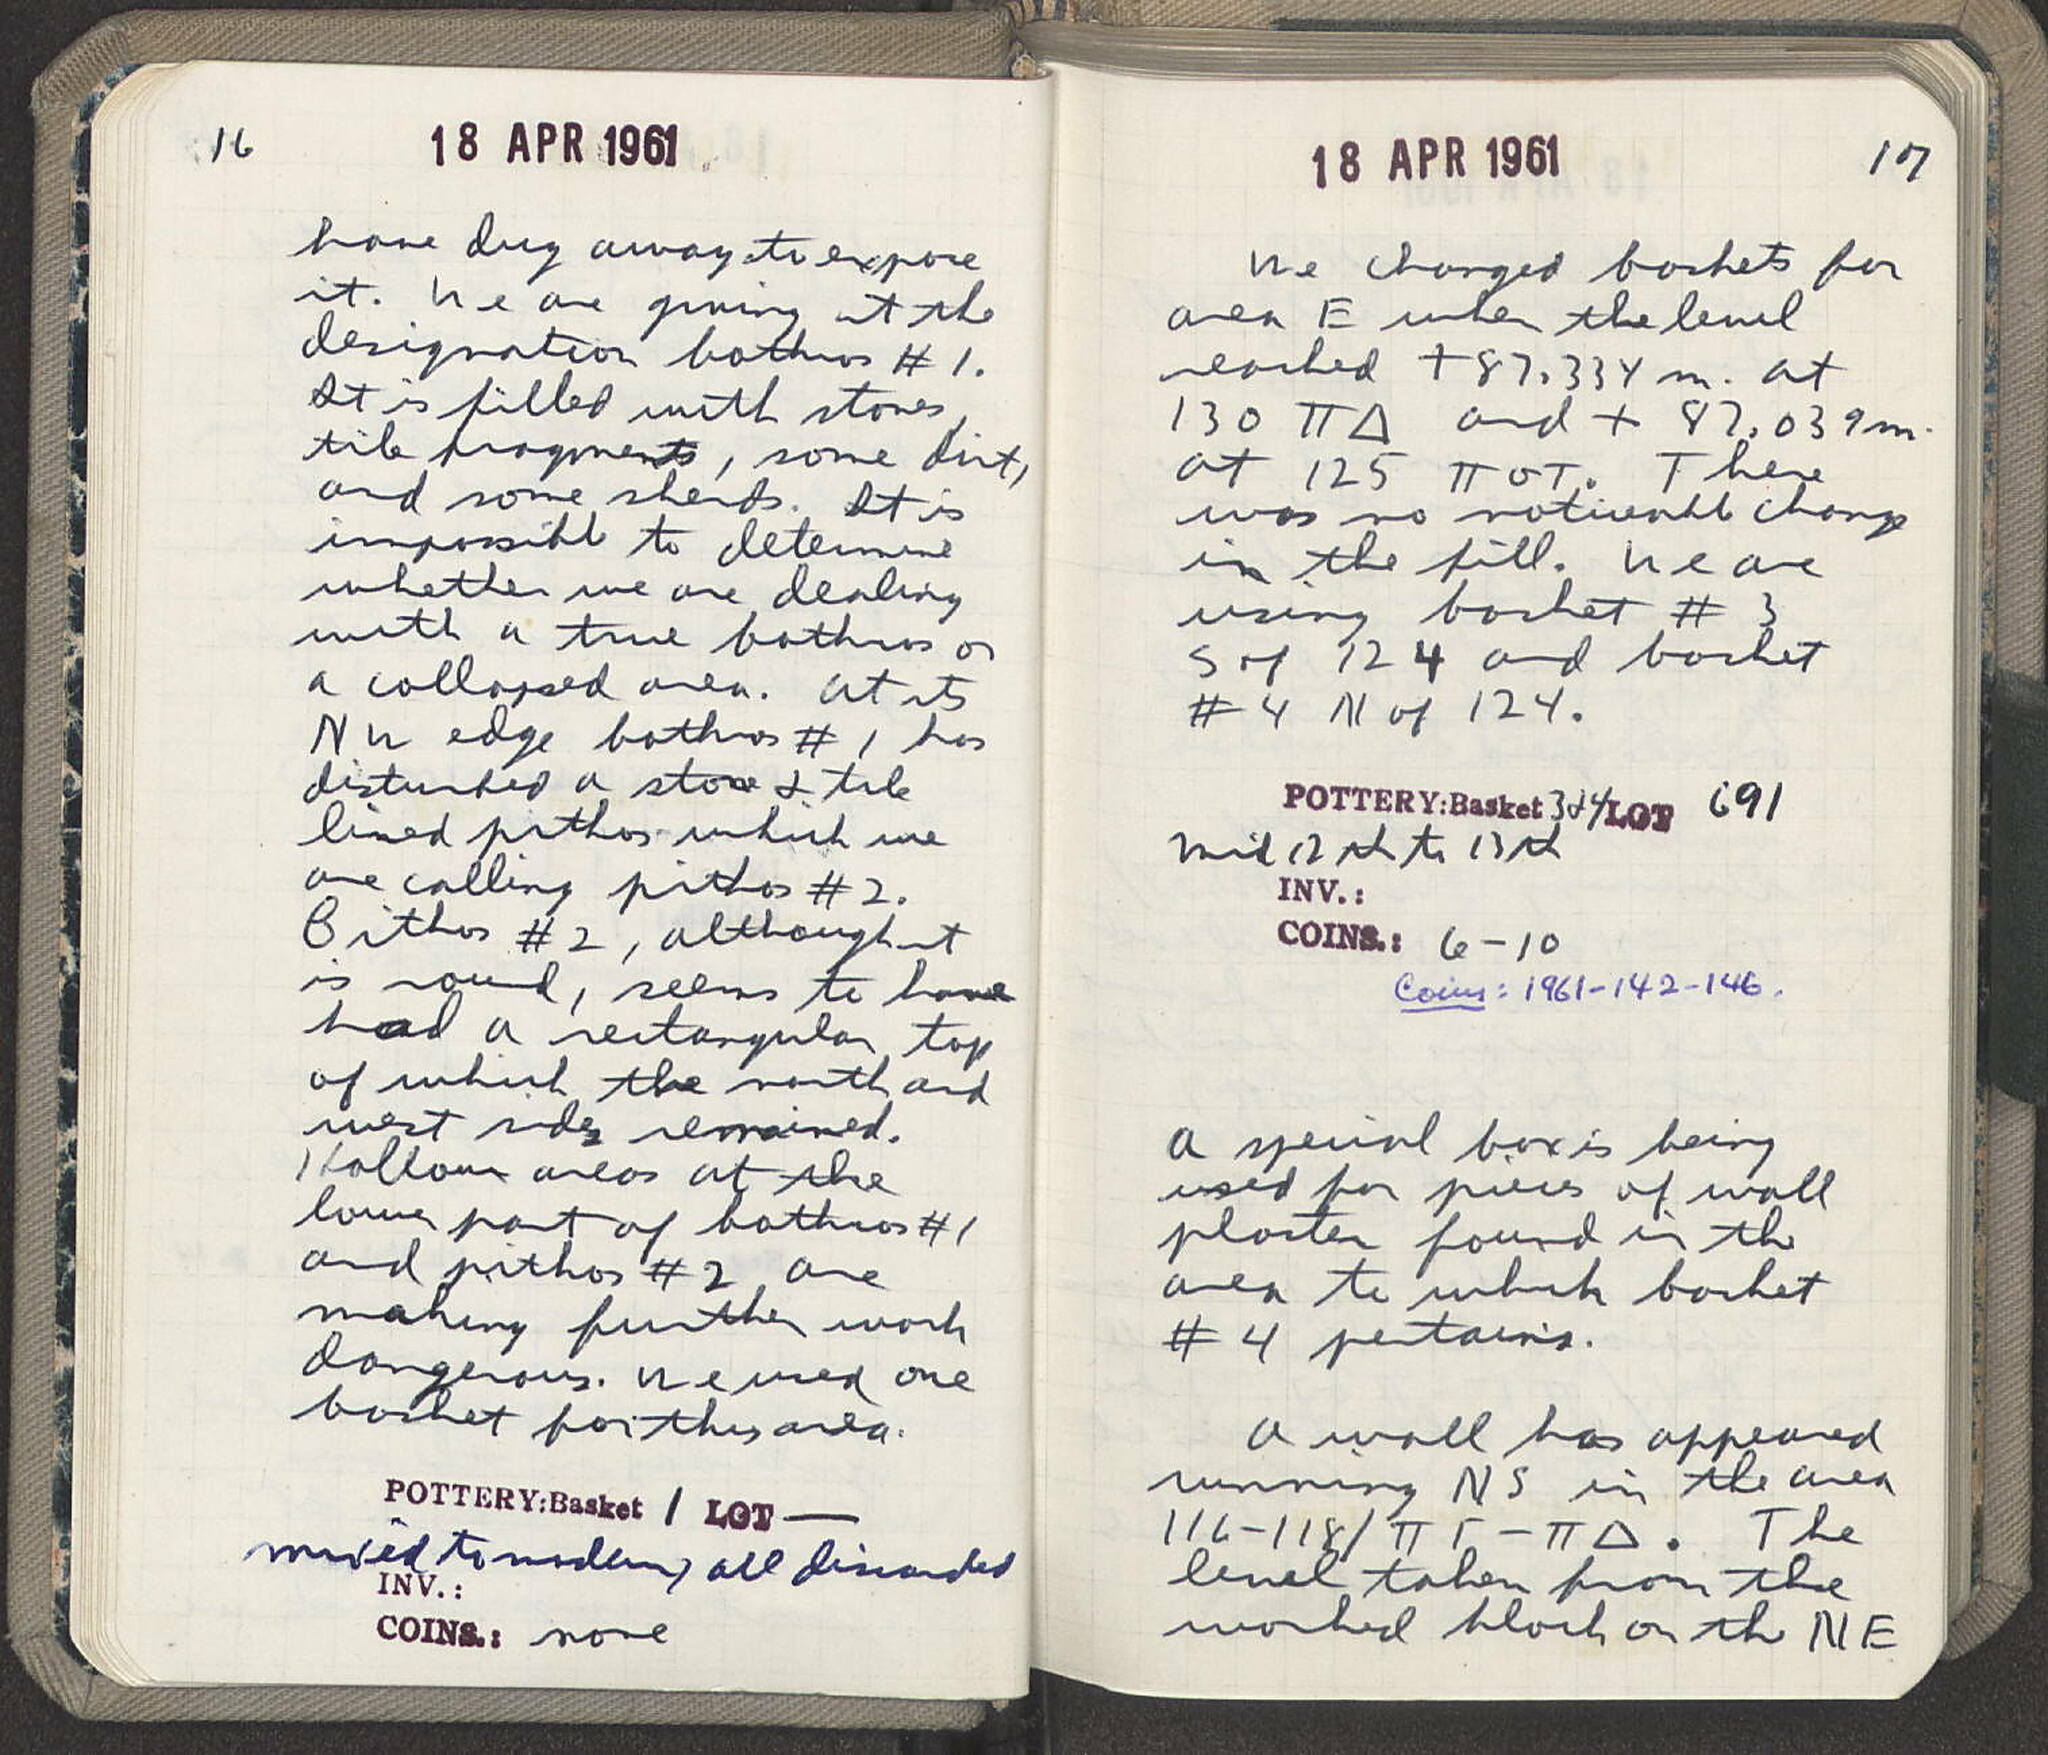 16
18 APR 1961
have dug away to expose
it. We are giving it the
designation bothros #1.
It is filled with stones,
tile fragments, some dirt,
and some sherds. It is
impossible to determine
whether we are dealing
with a true bothros or
a collapsed area. At its
NW edge bothros #1 has
disturbed a stone & tile
lined pithos which we
are calling pithos #2.
Pithos #2, although it
is round, seems to have
had a rectangular top
of which the north and
west sides remained.
Hollow areas at the
lower part of bothros #1
and pithos #2 are
making further work
dangerous. We used one
basket for this area.
POTTERY: Basket 1 LOT —
mixed to modern, all discarded
INV.:
COINS.: none
18 APR 1961
17
We changed baskets for
area E when the level
reached +87.334 m. at
130 ΠΔ and + 87.039 m.
at 125 Π. There
was no noticeable change
in the fill. We are
using basket # 3
S of 124 and basket
# 4 N of 124.
POTTERY: Basket 3+4/LOT 691
Mid 12th to 13th
INV.:
COINS.: 6-10
Coins: 1961-142-146.
A special box is being
used for pieces of wall
plaster found in the
area to which basket
# 4 pertains.
A wall has appeared
running NS in the area
116-118/ΠΓ-ΠΔ. The
level taken from the
worked block on the NE